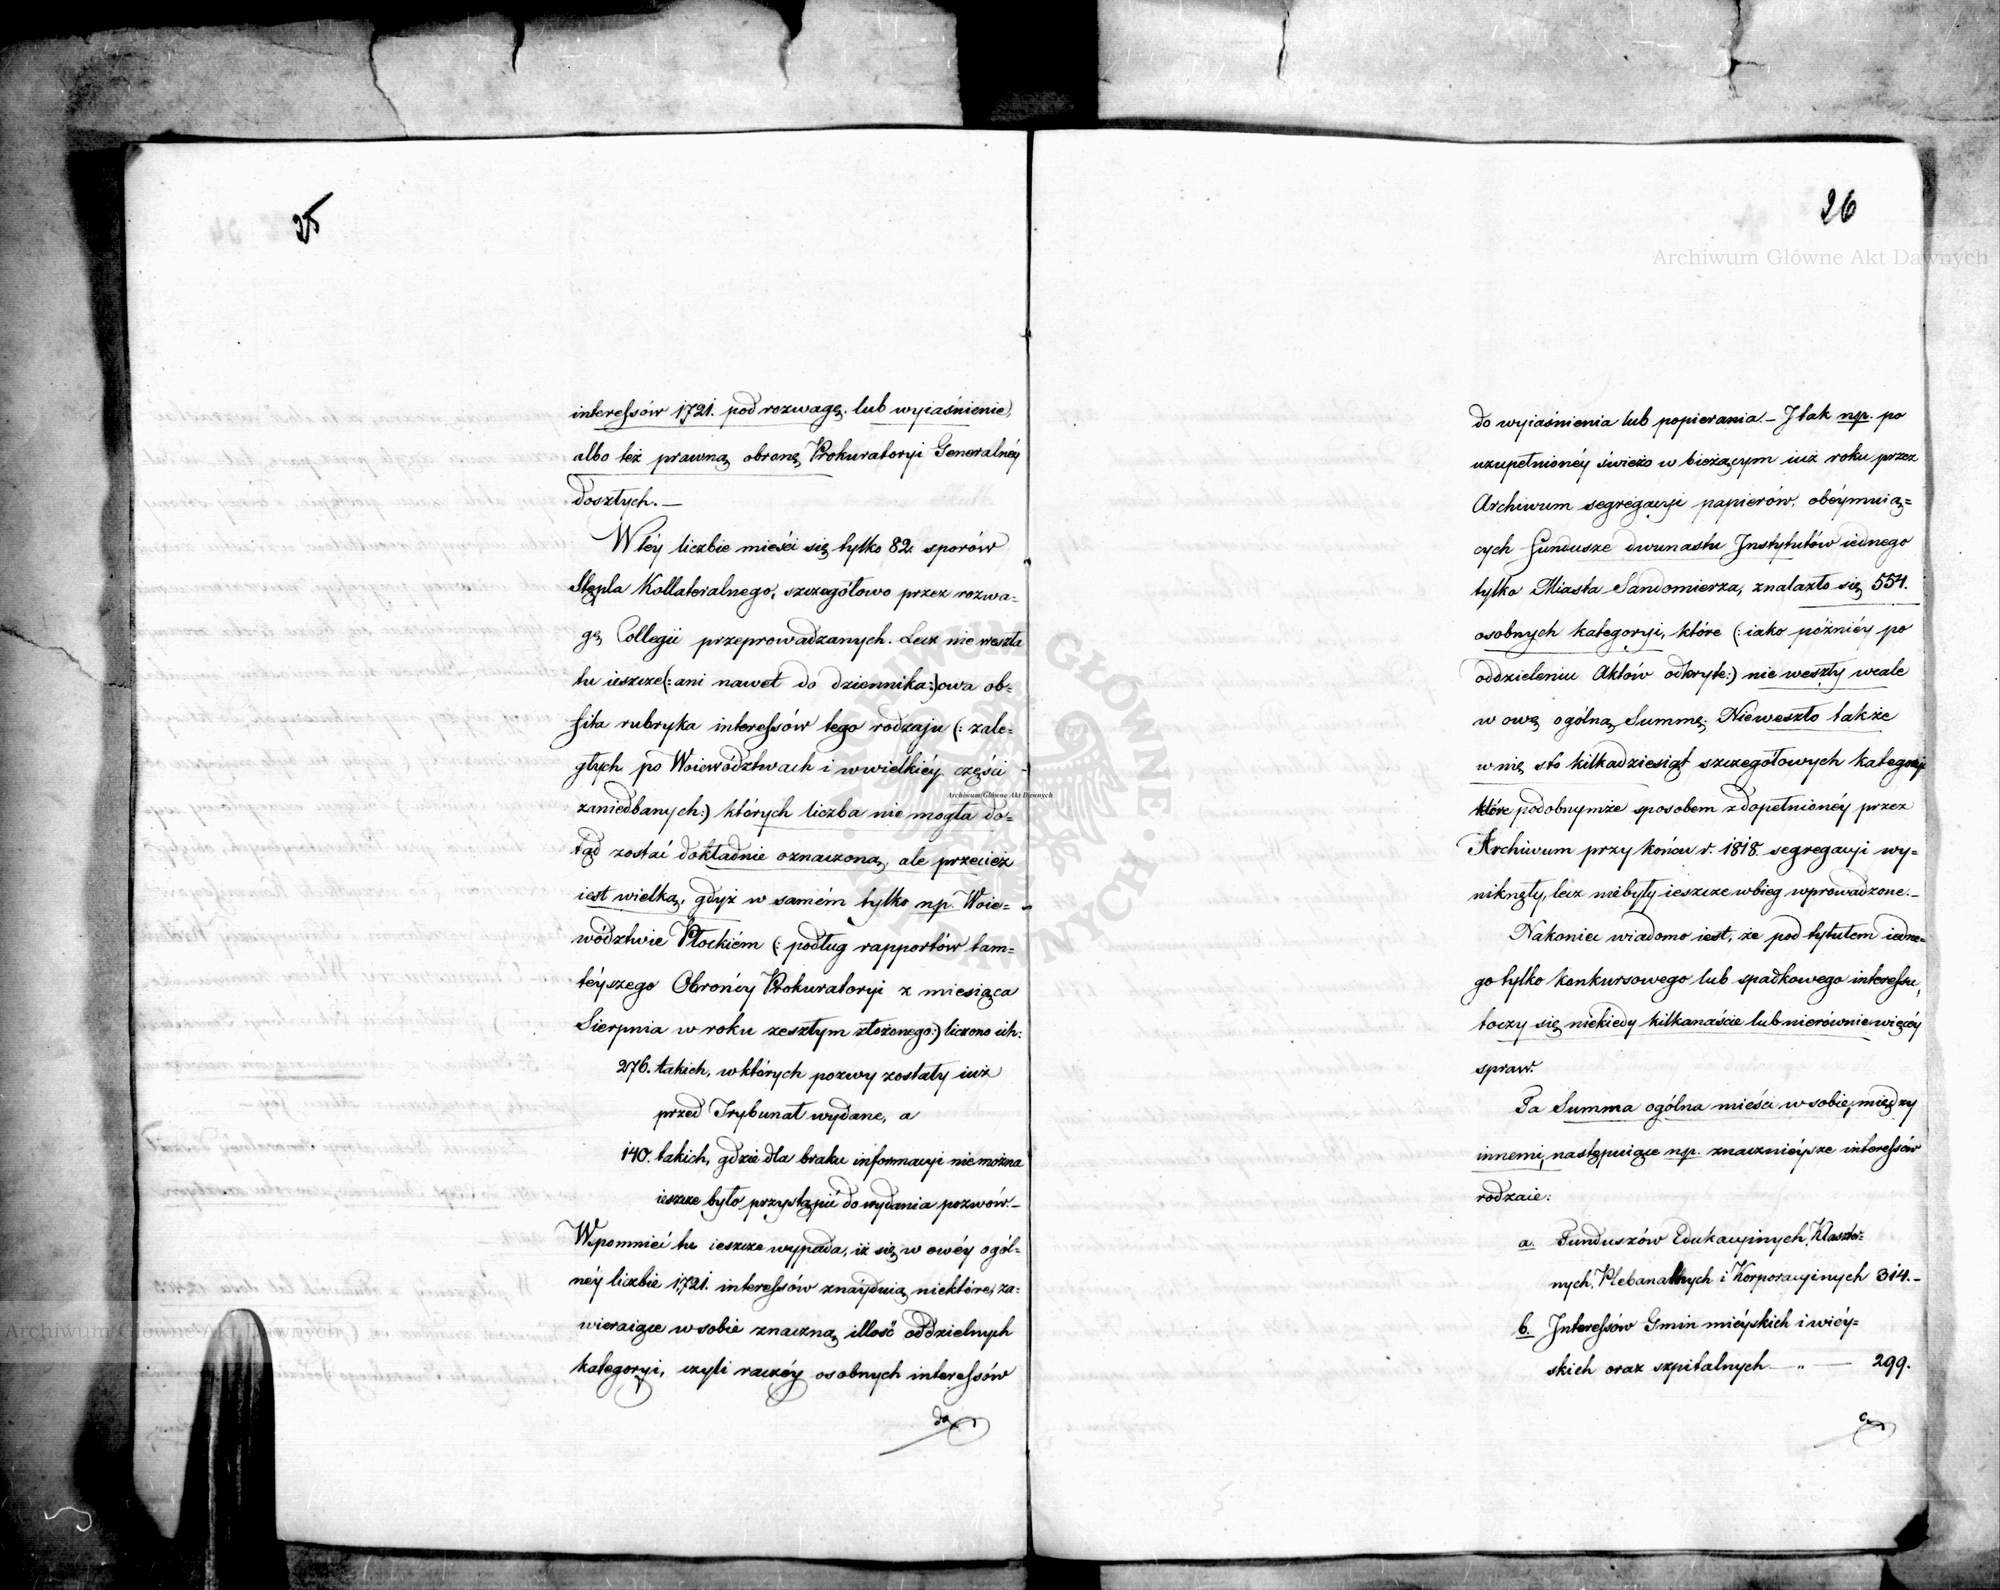 25
interessów 1721. pod rozwagę, lub wyiaśnienie,
albo też prawną obronę Prokuratoryi Generalnéy
doszłych.—
W téy liczbie mieści się tylko 82 sporów
Stępla Kollateralnego, szczegółowo przez rozwa=
gę Collegii przeprowadzanych. Lecz nie weszła
tu ieszcze (: ani nawet do dziennika:) owa ob=
fita rubryka interessów tego rodzaju (: zale=
głych po Woiewództwach i w wielkiéy części
zaniedbanych:) których liczba nie mogła do=
tąd zostać dokładnie oznaczoną, ale przecież
iest wielką, gdyż w samém tylko np. Woie=
wództwie Płockiém (: podług rapportów tam=
téyszego Obrońcy Prokuratoryi z miesiąca
Sierpnia w roku zeszłym złożonego:) liczono ich:
276. takich, w których pozwy zostały iuż
przed Trybunał wydane, a
140. takich, gdzie dla braku informacyi nie można
ieszcze było przystąpić do wydania pozwów.—
Wspomnieć tu ieszcze wypada, iż się w owéy ogól=
néy liczbie 1721. interessów znayduią niektóre, za=
wieraiące w sobie znaczną illość oddzielnych
kategoryi, czyli raczéy osobnych interessów
do
26
Archiwum Główne Akt Dawnych
do wyiaśnienia lub popierania.— I tak np. po
uzupełnionéy świeżo w bieżącym iuż roku przez
Archiwum segregacyi papierów, obéymuią=
cych fundusze dwunastu Instytutów iednego
tylko Miasta Sandomierza, znalazło się 554.
osobnych kategoryi, które (: iako późniéy po
oddzieleniu Aktów odkryte:) nie weszły wcale
w ową ogólną Summę. Nie weszło także
w nię sto kilkadziesiąt szczegółowych kategoryi
które podobnymże sposobem z dopełnionéy przez
Archiwum przy końcu r. 1818. segregacyi wy=
niknęły, lecz nie były ieszcze w bieg wprowadzone.—
Nakoniec wiadomo iest, że pod tytułem iedne=
go tylko konkursowego lub spadkowego interessu,
toczy się niekiedy kilkanaście lub nierównie więcéy
spraw.
Ta Summa ogólna mieści w sobie, między
innemi, następuiące np. znacznieysze interessów
rodzaie:
a. Funduszów Edukacyinych, Klasztor=
nych, Plebanalnych i Korporacyinych 314.—
b. Interessów Gmin mieyskich i wiéy=
skich oraz szpitalnych — „ — 299.
c.
Archiwum Główne Akt Dawnych
Archiwum Główne Akt Dawnych